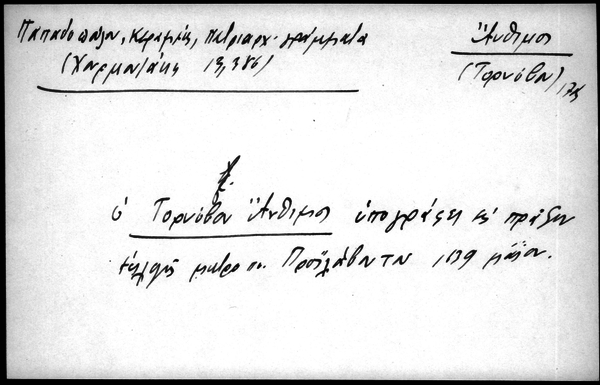 Παπαδοπούλου, Κεραμέως, Πατριαρχ. γράμματα
(Χαρμολάης 13, 386)
Ἄνθιμος
(Τορνόβου)
ὁ Τορνόβου Ἄνθιμος ὑπογράφει εἰς πρᾶξιν
ἐκλογῆς μητροπ. Προϊλάβου τῷ 1639 μαΐου.